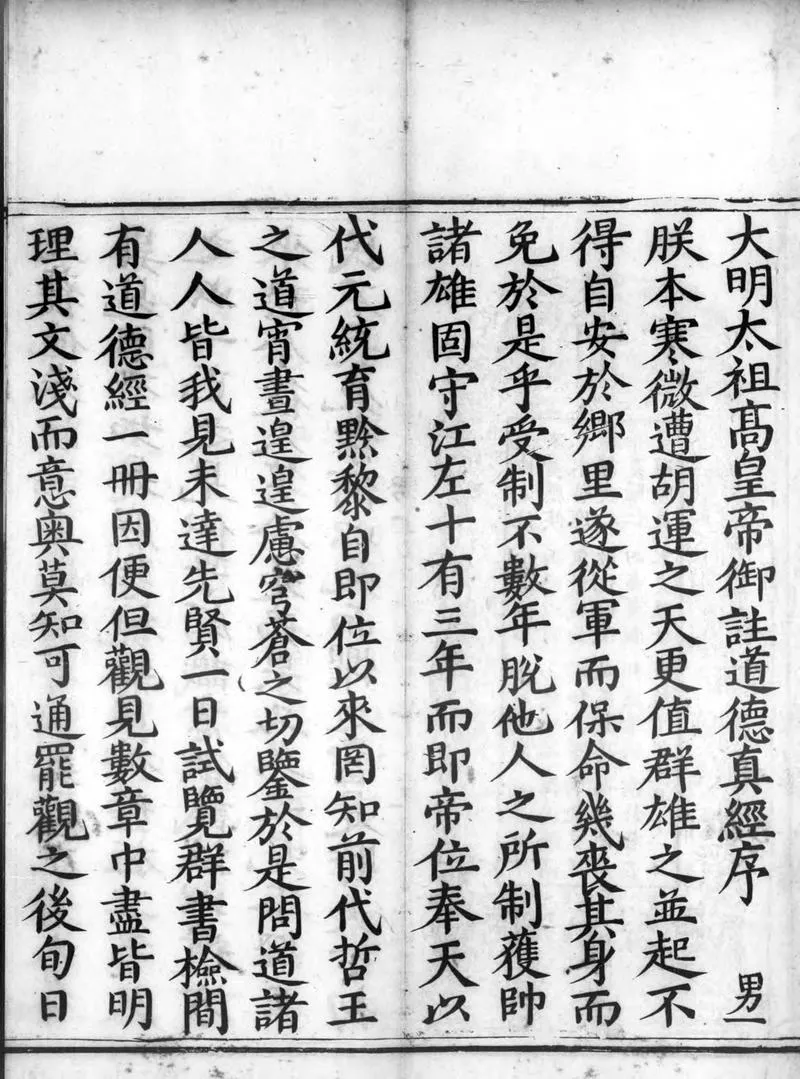 大明太祖高皇帝御註道德真經序 男一
朕本寒微遭胡運之天更值群雄之並起不
得自安於鄉里遂從軍而保命幾喪其身而
免於是乎受制不數年脫他人之所制獲帥
諸雄固守江左十有三年而即帝位奉天以
代元統育黔黎自即位以來罔知前代哲王
之道宵晝遑遑慮穹蒼之切鑒於是問道諸
人人皆我見未達先賢一日試覽群書檢間
有道德經一冊因便但觀見數章中盡皆明
理其文淺而意奧莫知可通罷觀之後旬日